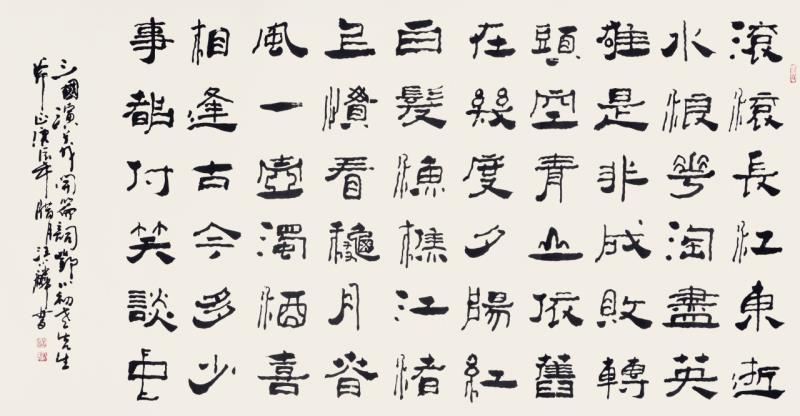 滾滾長江東逝
水浪花淘盡英
雄是非成敗轉
頭空青山依舊
在幾度夕陽紅
白髮漁樵江渚
上慣看穐月春
風一壺濁酒喜
相逢古今多少
事都付笑談中
三國演義開篇詞鄧小初老先生
正庚辰年臘月汪麟書